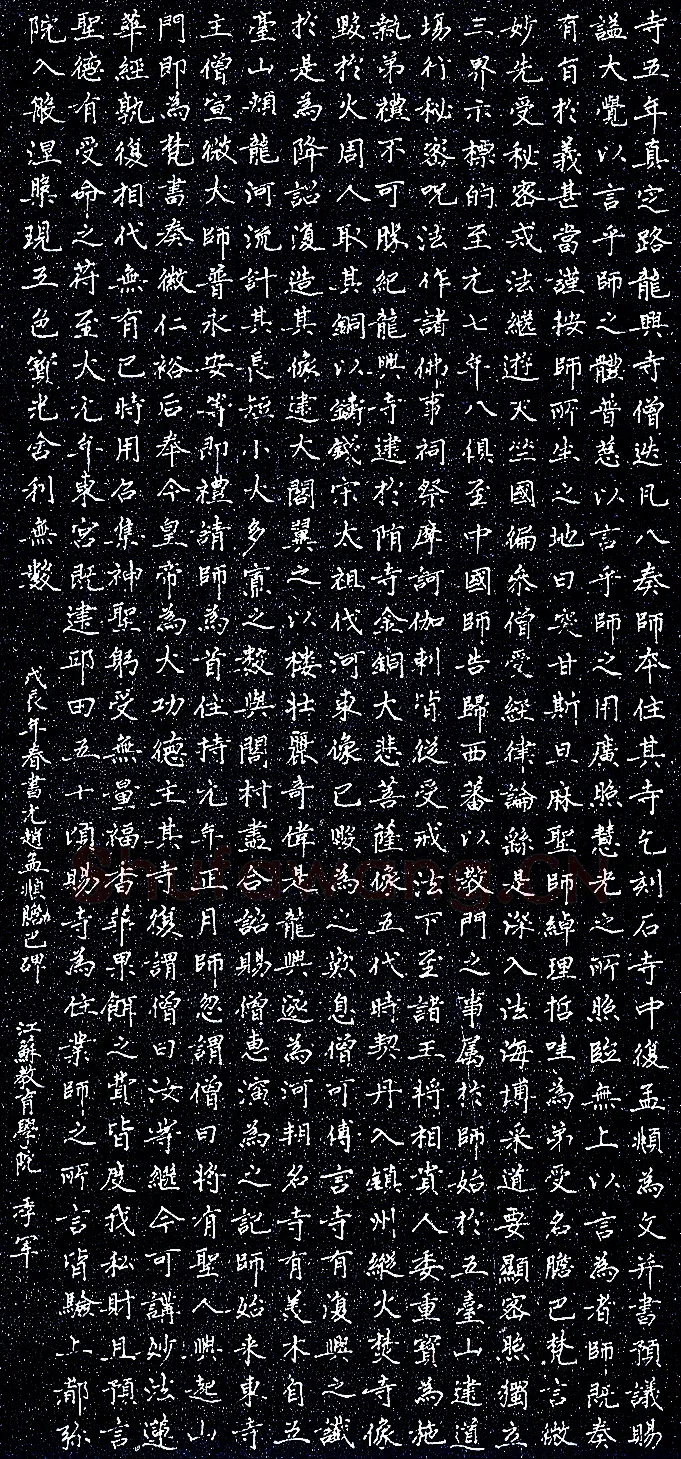 寺五年真定路龍興寺僧迭凡八奏師本住其寺乞刻石寺中復孟頫為文并書預議賜
謚大覺以言乎師之體普慈以言乎師之用廣照慧光之所照臨無上以言為者師既奏
有旨於義甚當謹按師所生之地曰突甘斯旦麻聖師綽理哲哇為弟受名膽巴梵言微
妙先受秘密戒法繼遊天竺國徧參僧受經律論繇是深入法海博采道要顯密照獨立
三界示標的至元七年八俱至中國師告歸西蕃以教門之事属於師始於五臺山建道
場行秘密咒法作諸佛事祠祭摩訶伽剌皆從受戒法下至諸王將相貴人委重寶為施
執弟禮不可勝紀龍興寺建於隋寺金銅大悲菩薩像五代時契丹入鎮州縱火焚寺像
毀於火周人取其銅以鑄錢宋太祖伐河東像已毀為之歎息僧可傳言寺有復興之讖
於是為降詔復造其像建大閣翼之以樓壯麗奇偉是龍興遂為河朔名寺有美木自五
臺山頰龍河流計其長短小大多寡之數與閣材盡合詔賜僧惠演為之記師始來東寺
主僧宣微大師普永安等即禮請師為首住持元年正月師忽謂僧曰將有聖人興起山
門即為梵書奏徽仁裕后奉今皇帝為大功德主其寺復謂僧曰汝等繼今可講妙法蓮
華經孰復相代無有已時用召集神聖躬受無量福香華果餌之費皆度我私財且預言
聖德有受命之符至大元年東宮既建邱田五十頃賜寺為住業師之所言皆驗上都弥
院入般涅槃現五色寶光舍利無數
戊辰年春書元趙孟頫膽巴碑 江蘇教育學院 李軍
Shufawang.CN